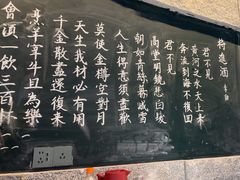 将進酒
李白
君不見
黄河之水天上来
奔流到海不復回
君不見
高堂明鏡悲白发
朝如青絲暮成雪
人生得意須盡歡
莫使金樽空對月
天生我材必有用
千金散盡還復来
烹羊宰牛且為樂
會須一飲三百杯